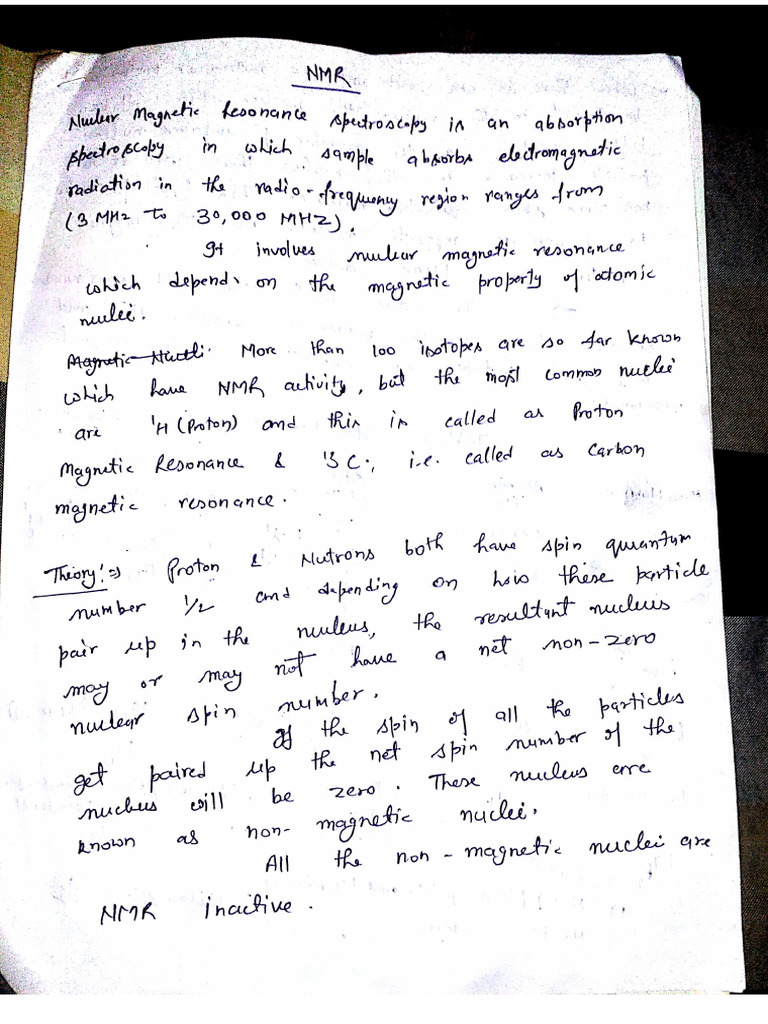 NMR
Nuclear Magnetic Resonance spectroscopy is an absorption
spectroscopy in which sample absorbs electromagnetic
radiation in the radio-frequency region ranges from
(3 MHz to 30,000 MHz).
It involves nuclear magnetic resonance
which depends on the magnetic property of atomic
nuclei.
Magnetic Nuclei: More than 100 isotopes are so far known
which have NMR activity, but the most common nuclei
are ¹H (Proton) and this is called as Proton
Magnetic Resonance & ¹3C., i.e. called as Carbon
magnetic resonance.
Theory:⇒ Proton & Nutrons both have spin quantum
number 1/2 and depending on how these particle
pair up in the nucleus, the resultant nucleus
may or may not have a net non-zero
nuclear spin number.
If the spin of all the particles
get paired up the net spin number of the
nucleus will be zero. These nucleus are
known as non-magnetic nuclei.
All the non-magnetic nuclei are
NMR inactive.